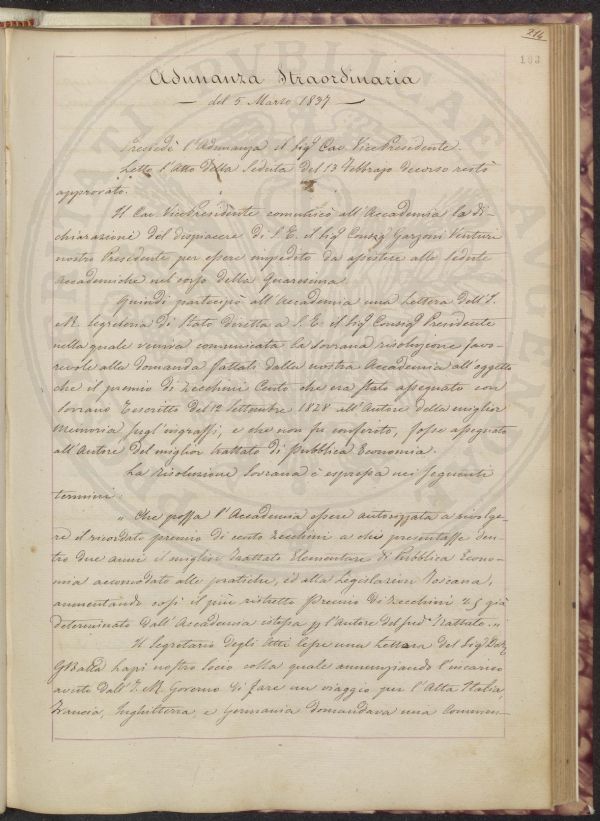 214
183
Adunanza Straordinaria
— del 5. Marzo 1837 —
Presiedè l'Adunanza il Sigʳ Cav. VicePresidente.
Letto l'Atto della Seduta del 13 Febbrajo decorso restò
approvato.
Il Cav. VicePresidente comunicò all'Accademia la di-
chiarazione del dispiacere di S. E. il Sigʳ Consigʳ Garzoni Venturi
nostro Presidente per essere impedito da assistere alle Sedute
accademiche nel corso della Quaresima.
Quindi partecipò all'Accademia una Lettera dell'I.
e R. Segreteria di Stato diretta a S. E. il Sigʳ Consigʳ Presidente
nella quale veniva comunicata la Sovrana risoluzione favo-
revole alla domanda fattati dalla nostra Accademia all'oggetto
che il premio di Zecchini Cento che era stato assegnato con
Sovrano Rescritto del 12 Settembre 1828 all'Autore della miglior
Memoria sugl'ingrassi, e che non fu conferito, fosse assegnato
all'Autore del miglior trattato di pubblica Economia.
La risoluzione Sovrana è espressa nei seguenti
termini:
„ Che possa l'Accademia essere autorizzata a rivolge-
re il ricordato premio di cento zecchini a chi presentasse den-
tro due anni il miglior trattato Elementare di Pubblica Econo-
mia accomodato alle pratiche, ed alla Legislazione Toscana,
aumentando così il più ristretto Premio di Zecchini 25 già
determinato dall'Accademia istessa p l'Autore del sudᵒ Trattato. „
Il Segretario degli Atti lesse una Lettera del Sigʳ Dotʳ
GBatta Lapi nostro Socio colla quale annunziando l'incarico
avuto dall'I. R. Governo di fare un viaggio per l'Alta Italia
Francia, Inghilterra, e Germania domandava una Commen-